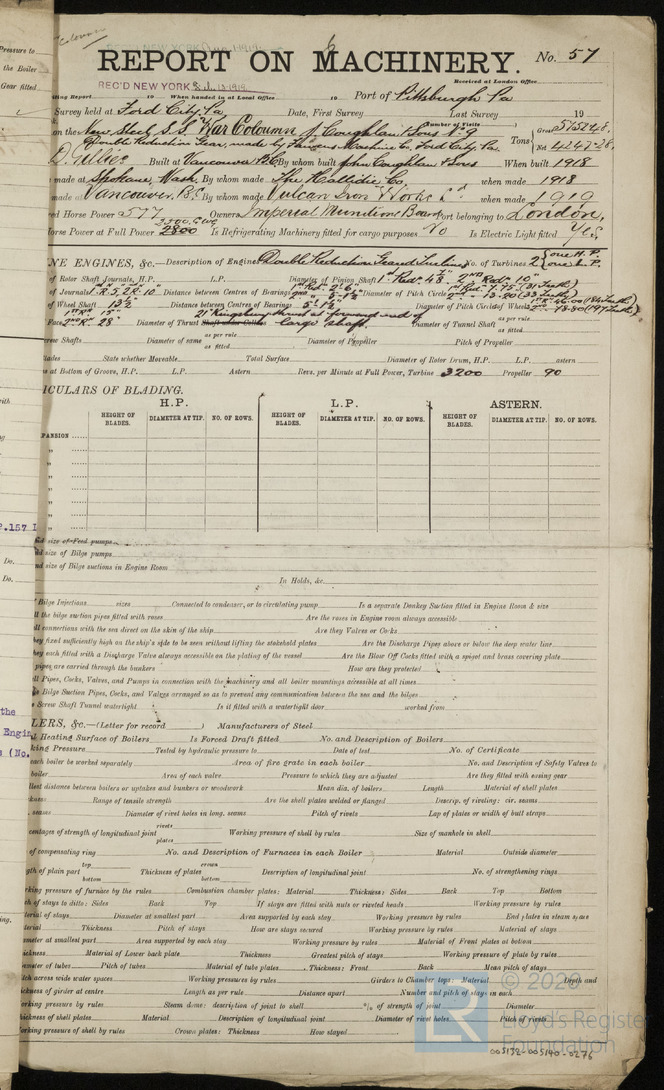 REPORT ON MACHINERY.
No. 57
REC'D NEW YORK
Received at London Office
When handed in at Local Office 19 Port of Pittsburgh Pa
Survey held at Ford City, Pa Date, First Survey Last Survey 19
on the New Steel S.S. "War Coloumn" J. Coughlan & Sons No 9
Number of Visits
Tons Gross 5752.48
Net 4247.28
Double Reduction Gear, made by Fawcus Machine Co. Ford City Pa.
Built at Vancouver B.C. By whom built John Coughlan & Sons When built 1918
made at Spokane, Wash. By whom made The Hallidie Co. when made 1918
made at Vancouver, B.C. By whom made Vulcan Iron Works Ld. when made 1919
Horse Power 577 Owners Imperial Munitions Board Port belonging to London,
Horse Power at Full Power 2800 Is Refrigerating Machinery fitted for cargo purposes No Is Electric Light fitted Yes
NE ENGINES, &c.—Description of Engines Double Reduction Geared Turbines No. of Turbines 2 {one H.P. one L.P.
of Rotor Shaft Journals, H.P. L.P. Diameter of Pinion Shaft
of Journals Distance between Centres of Bearings Diameter of Pitch Circle
of Wheel Shaft 13½ Distance between Centres of Bearings Diameter of Pitch Circle of Wheel
Face Diameter of Thrust 21" Kingsbury thrust at forward end of large shaft. Diameter of Tunnel Shaft as per rule as fitted
Screw Shafts Diameter of same as per rule as fitted Diameter of Propeller Pitch of Propeller
Blades State whether Moveable Total Surface Diameter of Rotor Drum, H.P. L.P. astern
at Bottom of Groove, H.P. L.P. Astern Revs. per Minute at Full Power, Turbine 3200 Propeller 90
ICULARS OF BLADING.
H.P. L.P. ASTERN.
HEIGHT OF BLADES. DIAMETER AT TIP. NO. OF ROWS. HEIGHT OF BLADES. DIAMETER AT TIP. NO. OF ROWS. HEIGHT OF BLADES. DIAMETER AT TIP. NO. OF ROWS.
PANSION
size of Feed pumps
size of Bilge pumps
size of Bilge suctions in Engine Room
In Holds, &c.
Bilge Injections sizes Connected to condenser, or to circulating pump Is a separate Donkey Suction fitted in Engine Room & size
ll the bilge suction pipes fitted with roses Are the roses in Engine room always accessible
ll connections with the sea direct on the skin of the ship Are they Valves or Cocks
hey fixed sufficiently high on the ship's side to be seen without lifting the stokehold plates Are the Discharge Pipes above or below the deep water line
hey each fitted with a Discharge Valve always accessible on the plating of the vessel Are the Blow Off Cocks fitted with a spigot and brass covering plate
pipes are carried through the bunkers How are they protected
ll Pipes, Cocks, Valves, and Pumps in connection with the machinery and all boiler mountings accessible at all times
Bilge Suction Pipes, Cocks, and Valves arranged so as to prevent any communication between the sea and the bilges
Screw Shaft Tunnel watertight Is it fitted with a watertight door worked from
LERS, &c.—(Letter for record ) Manufacturers of Steel
Heating Surface of Boilers Is Forced Draft fitted No. and Description of Boilers
king Pressure Tested by hydraulic pressure to Date of test No. of Certificate
each boiler be worked separately Area of fire grate in each boiler No. and Description of Safety Valves to
boiler Area of each valve Pressure to which they are adjusted Are they fitted with easing gear
llest distance between boilers or uptakes and bunkers or woodwork Mean dia. of boilers Length Material of shell plates
kness Range of tensile strength Are the shell plates welded or flanged Descrip. of riveting: cir. seams
seams Diameter of rivet holes in long. seams Pitch of rivets Lap of plates or width of butt straps
centages of strength of longitudinal joint rivets plates Working pressure of shell by rules Size of manhole in shell
of compensating ring No. and Description of Furnaces in each Boiler Material Outside diameter
gth of plain part top bottom Thickness of plates crown bottom Description of longitudinal joint No. of strengthening rings
rking pressure of furnace by the rules Combustion chamber plates: Material Thickness: Sides Back Top Bottom
h of stays to ditto: Sides Back Top If stays are fitted with nuts or riveted heads Working pressure by rules
terial of stays Diameter at smallest part Area supported by each stay Working pressure by rules End plates in steam space
terial Thickness Pitch of stays How are stays secured Working pressure by rules Material of stays
ameter at smallest part Area supported by each stay Working pressure by rules Material of Front plates at bottom
ickness Material of Lower back plate Thickness Greatest pitch of stays Working pressure of plate by rules
ameter of tubes Pitch of tubes Material of tube plates Thickness: Front Back Mean pitch of stays
ch across wide water spaces Working pressures by rules Girders to Chamber tops: Material Depth and
ickness of girder at centre Length as per rule Distance apart Number and pitch of stays in each
orking pressure by rules Steam dome: description of joint to shell % of strength of joint Diameter
hickness of shell plates Material Description of longitudinal joint Diameter of rivet holes Pitch of rivets
orking pressure of shell by rules Crown plates: Thickness How stayed
© 2020
Lloyd's Register
Foundation
LR
005132-005140-0276